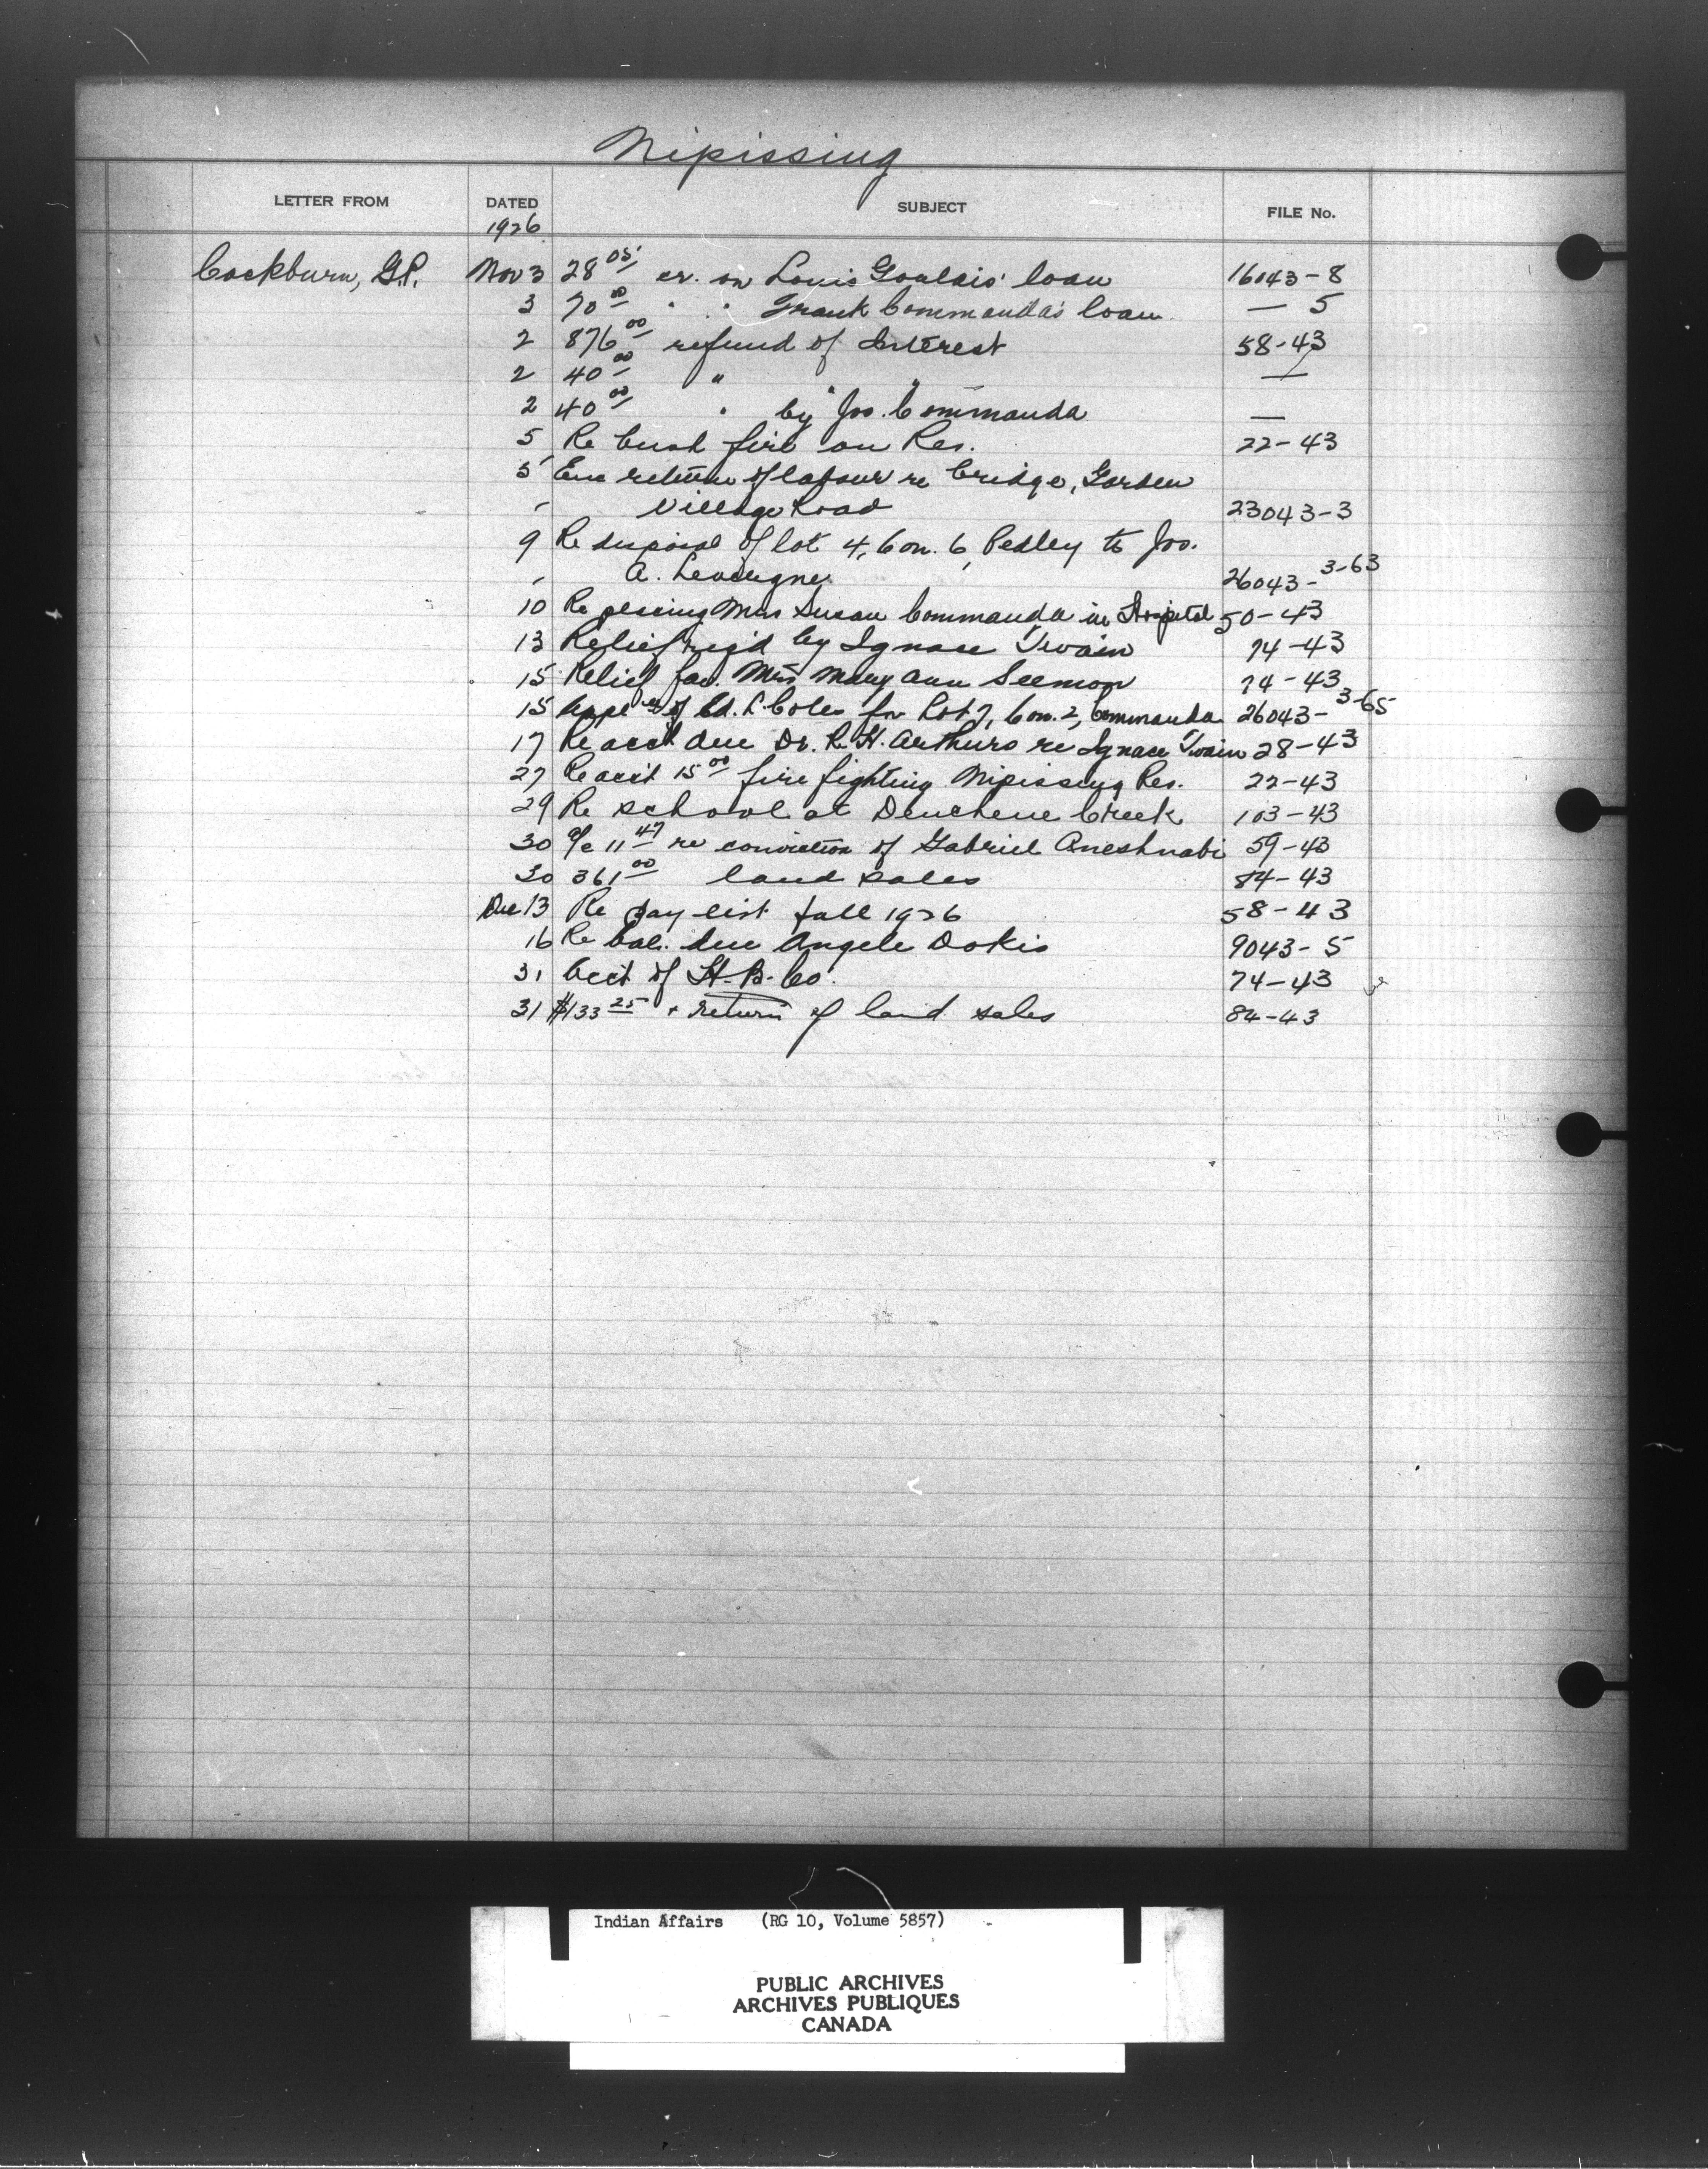 Nipissing
LETTER FROM DATED SUBJECT FILE No.
1926
Cockburn, G.P. Nov 3 28 05 cr. on Louis Goulais' loan 16043-8
3 70 00 " " Frank Commanda's loan — 5
2 876 00 refund of Interest 58-43
2 40 00 " " —
2 40 00 " by Jos. Commanda —
5 Re bush fire on Res. 22-43
5 Enc return of labour re bridge, Garden
Village Road 23043-3
9 Re disposal of lot 4, Con. 6, Pedley to Jos.
A. Levesque 26043-3-63
10 Re placing Mrs Susan Commanda in Hospital 50-43
13 Relief req'd by Ignace Twain 74-43
15 Relief for Mrs Mary Ann Seemor 74-43
15 of Ed. L. Coles for Lot 7, Con. 2, Commanda 26043-3-65
17 Re acct due Dr. R. H. Arthurs re Ignace Twain 28-43
27 Re acct 15 00 fire fighting Nipissing Res. 22-43
29 Re school at Deuchene Creek 103-43
30 a/c 11 47 re conviction of Gabriel Aneshnabi 59-43
30 361 00 land sales 84-43
Dec 13 Re pay list fall 1926 58-43
16 Re bal. due Angele Dokis 9043-5
31 Acct of H.B. Co. 74-43
31 $133 25 + return of land sales 84-43
Indian Affairs (RG 10, Volume 5857)
PUBLIC ARCHIVES
ARCHIVES PUBLIQUES
CANADA